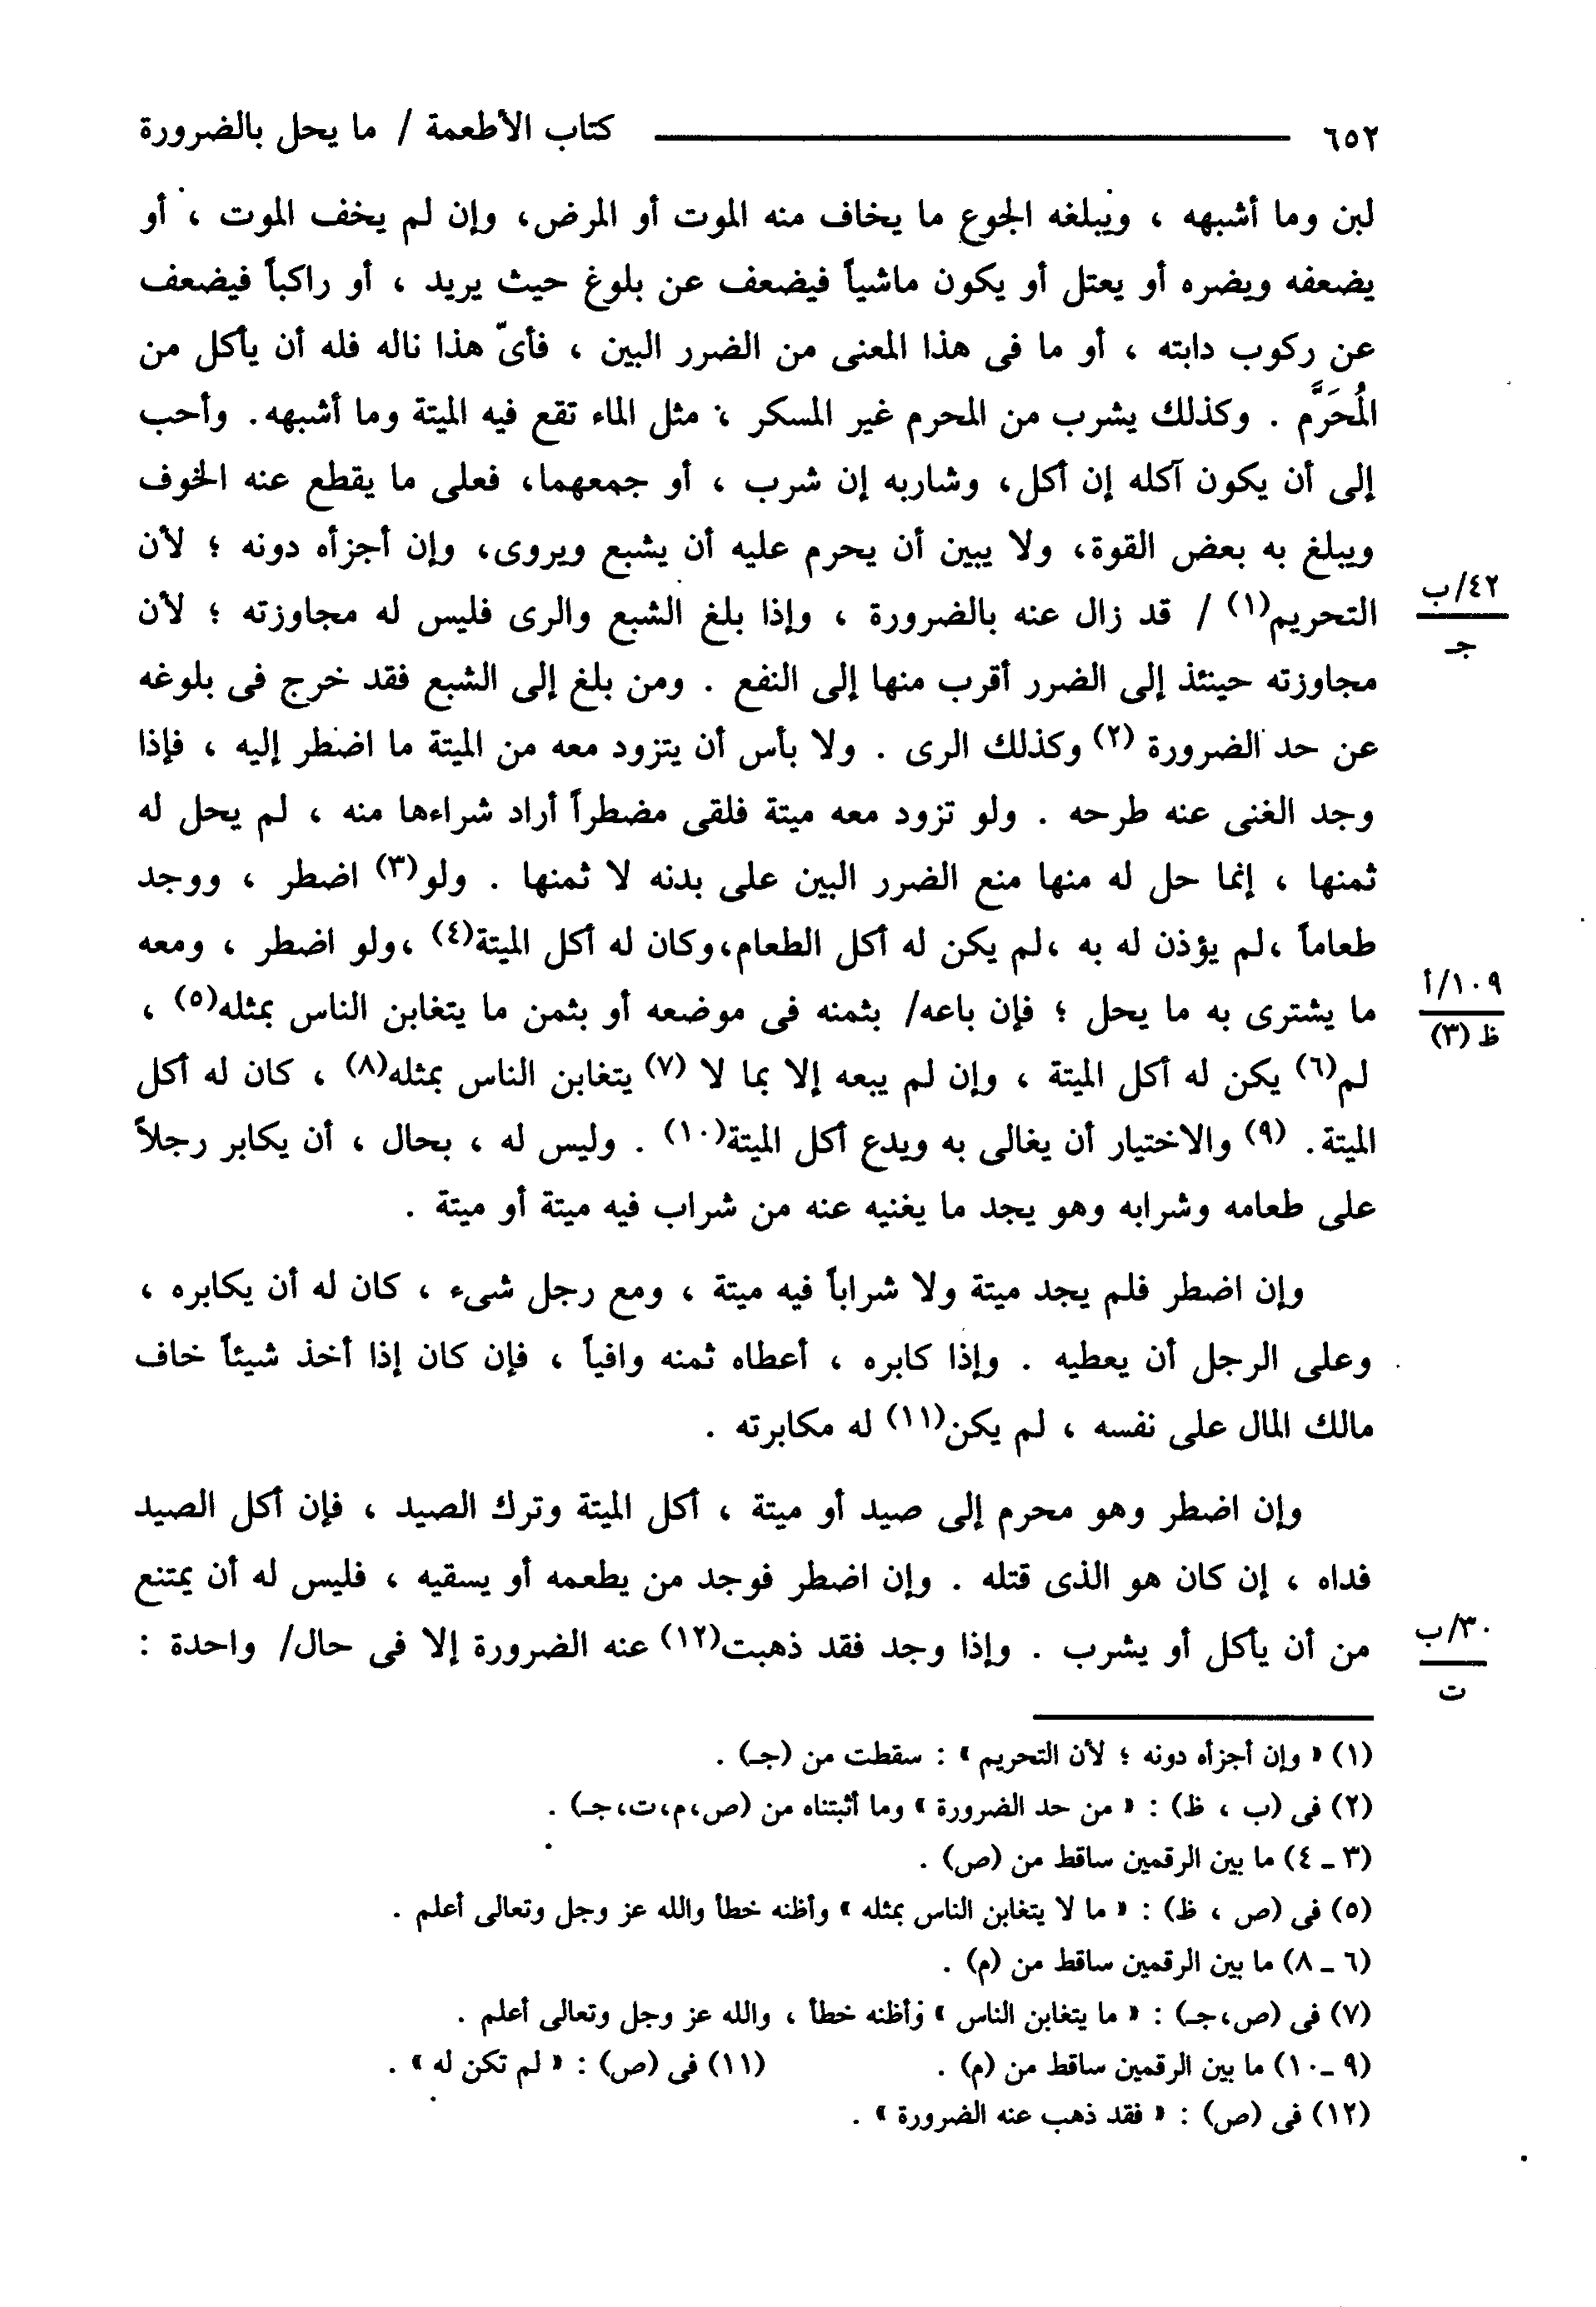 ٦٥٢ كتاب الأطعمة / ما يحل بالضرورة
لبن وما أشبهه ، ويبلغه الجوع ما يخاف منه الموت أو المرض، وإن لم يخف الموت ، أو
يضعفه ويضره أو يعتل أو يكون ماشياً فيضعف عن بلوغ حيث يريد ، أو راكباً فيضعف
عن ركوب دابته ، أو ما فى هذا المعنى من الضرر البين ، فأىّ هذا ناله فله أن يأكل من
المُحَرَّم . وكذلك يشرب من المحرم غير المسكر ، مثل الماء تقع فيه الميتة وما أشبهه. وأحب
إلى أن يكون آكله إن أكل، وشاربه إن شرب ، أو جمعهما، فعلى ما يقطع عنه الخوف
ويبلغ به بعض القوة، ولا يبين أن يحرم عليه أن يشبع ويروى، وإن أجزأه دونه ؛ لأن
٤٢/ب
التحريم(١) / قد زال عنه بالضرورة ، وإذا بلغ الشبع والرى فليس له مجاوزته ؛ لأن
جـ
مجاوزته حينئذ إلى الضرر أقرب منها إلى النفع . ومن بلغ إلى الشبع فقد خرج فى بلوغه
عن حد الضرورة (٢) وكذلك الرى . ولا بأس أن يتزود معه من الميتة ما اضطر إليه ، فإذا
وجد الغنى عنه طرحه . ولو تزود معه ميتة فلقى مضطراً أراد شراءها منه ، لم يحل له
ثمنها ، إنما حل له منها منع الضرر البين على بدنه لا ثمنها . ولو(٣) اضطر ، ووجد
طعاماً ،لم يؤذن له به ،لم يكن له أكل الطعام،وكان له أكل الميتة(٤) ،ولو اضطر ، ومعه
١٠٩/أ
ما يشترى به ما يحل ؛ فإن باعه/ بثمنه فى موضعه أو بثمن ما يتغابن الناس بمثله(٥) ،
ظ (٣)
لم(٦) يكن له أكل الميتة ، وإن لم يبعه إلا بما لا (٧) يتغابن الناس بمثله(٨) ، كان له أكل
الميتة. (٩) والاختيار أن يغالى به ويدع أكل الميتة(١٠) . وليس له ، بحال ، أن يكابر رجلاً
على طعامه وشرابه وهو يجد ما يغنيه عنه من شراب فيه ميتة أو ميتة .
وإن اضطر فلم يجد ميتة ولا شراباً فيه ميتة ، ومع رجل شىء ، كان له أن يكابره ،
وعلى الرجل أن يعطيه . وإذا كابره ، أعطاه ثمنه وافياً ، فإن كان إذا أخذ شيئاً خاف
مالك المال على نفسه ، لم يكن(١١) له مكابرته .
وإن اضطر وهو محرم إلى صيد أو ميتة ، أكل الميتة وترك الصيد ، فإن أكل الصيد
فداه ، إن كان هو الذى قتله . وإن اضطر فوجد من يطعمه أو يسقيه ، فليس له أن يمتنع
٣٠/ب
من أن يأكل أو يشرب . وإذا وجد فقد ذهبت(١٢) عنه الضرورة إلا فى حال/ واحدة :
ت
(١) « وإن أجزأه دونه ؛ لأن التحريم » : سقطت من (جـ) .
(٢) فى (ب ، ظ) : « من حد الضرورة » وما أثبتناه من (ص،م،ت،جـ) .
(٣ ـ ٤) ما بين الرقمين ساقط من (ص) .
(٥) فى (ص ، ظ) : « ما لا يتغابن الناس بمثله » وأظنه خطأ والله عز وجل وتعالى أعلم .
(٦ ـ ٨) ما بين الرقمين ساقط من (م) .
(٧) فى (ص،جـ) : « ما يتغابن الناس » وأظنه خطأ ، والله عز وجل وتعالى أعلم .
(٩ ـ ١٠) ما بين الرقمين ساقط من (م) . (١١) فى (ص) : « لم تكن له » .
(١٢) فى (ص) : « فقد ذهب عنه الضرورة » .